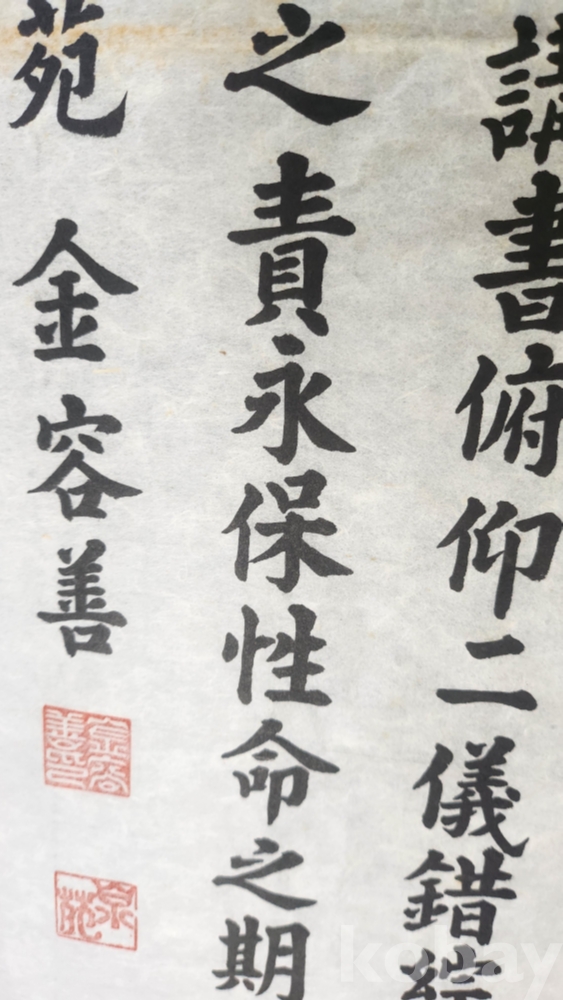 講書俯仰二儀錯綜
之責永保性命之期
苑 金容善
金容善印
泉苑
kobay